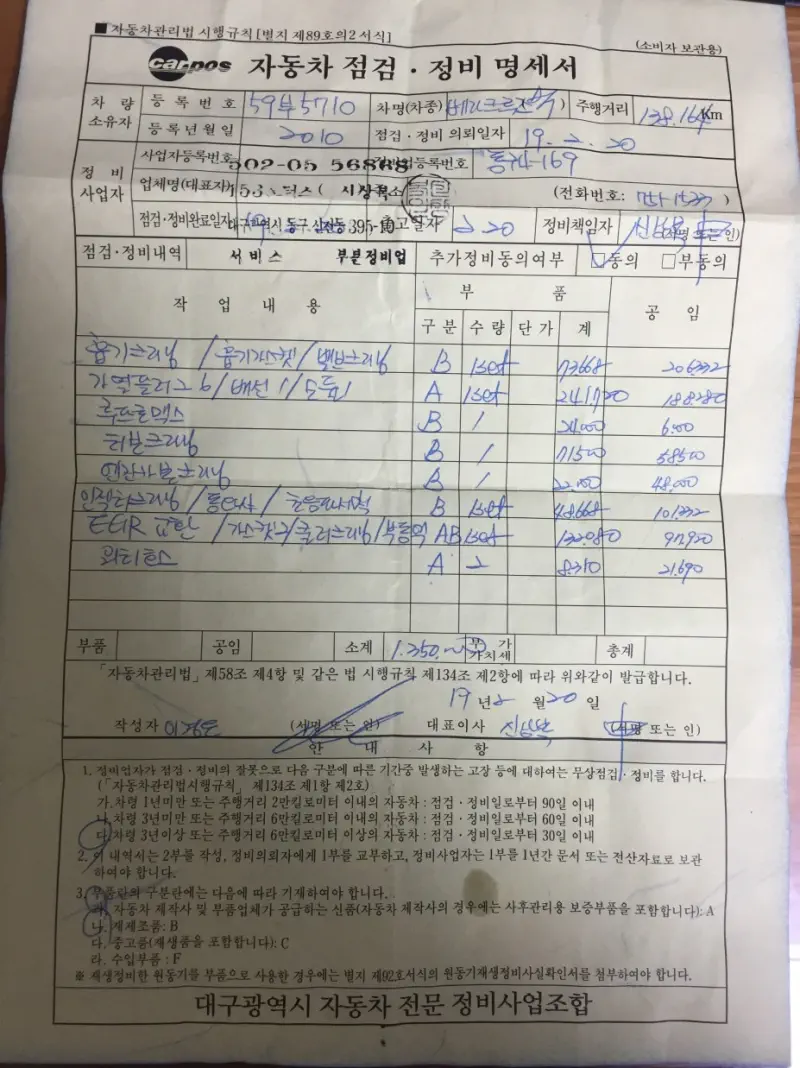 ■ 자동차관리법 시행규칙 [별지 제89호의2 서식]
(소비자 보관용)
carpos 자동차 점검·정비 명세서
차량 소유자 등록번호 59부5710 차명(차종) (베라크루즈 ) 주행거리 138.164 Km
등록년월일 2010 점검·정비 의뢰일자 19. 2. 20
정비 사업자 사업자등록번호 502-05 56868 등록번호 동구4-169
업체명(대표자) (전화번호: 751-1533)
점검·정비완료일자 대구광역시 동구 395-10 출고일자 2 20 정비책임자 (서명 또는 인)
점검·정비내역 서비스 부분정비업 추가정비동의여부 ☑동의 □부동의
작업내용 부품 공임
구분 수량 단가 계
흡기크리닝 / 흡기가스켓 / 밸브크리닝 B 1set 73668 206.332
가열플러그 6 / 배선 1 / A 1set 241.720 188.280
B 1 24.000 6.000
터보크리닝 B 1 71500 58500
엔진카본크리닝 B 1 22.000 48.000
인젝터크리닝 / 동와샤 / B 1set 48668 101.332
EGR 교환 / 가스켓 / 쿨러크리닝 / 부동액 AB 1set 132.080 97.920
A 2 8.310 21.690
부품 공임 소계 1.350.000 부가가치세 총계
「자동차관리법」제58조 제4항 및 같은 법 시행규칙 제134조 제2항에 따라 위와같이 발급합니다.
19 년 2 월 20 일
작성자 (서명 또는 인) 대표이사 (서명 또는 인)
안내사항
1. 정비업자가 점검·정비의 잘못으로 다음 구분에 따른 기간중 발생하는 고장 등에 대하여는 무상점검·정비를 합니다.
(「자동차관리법시행규칙」 제134조 제1항 제2호)
가.차령 1년미만 또는 주행거리 2만킬로미터 이내의 자동차 : 점검·정비일로부터 90일 이내
나.차령 3년미만 또는 주행거리 6만킬로미터 이내의 자동차 : 점검·정비일로부터 60일 이내
다.차령 3년이상 또는 주행거리 6만킬로미터 이상의 자동차 : 점검·정비일로부터 30일 이내
2. 이 내역서는 2부를 작성, 정비의뢰자에게 1부를 교부하고, 정비사업자는 1부를 1년간 문서 또는 전산자료로 보관
하여야 합니다.
3. 부품란의 구분란에는 다음에 따라 기재하여야 합니다.
가. 자동차 제작사 및 부품업체가 공급하는 신품(자동차 제작사의 경우에는 사후관리용 보증부품을 포함합니다): A
나. 재제조품 : B
다. 중고품(재생품을 포함합니다): C
라. 수입부품 : F
※ 재생정비한 원동기를 부품으로 사용한 경우에는 별지 제92호서식의 원동기재생정비사실확인서를 첨부하여야 합니다.
대구광역시 자동차 전문 정비사업조합